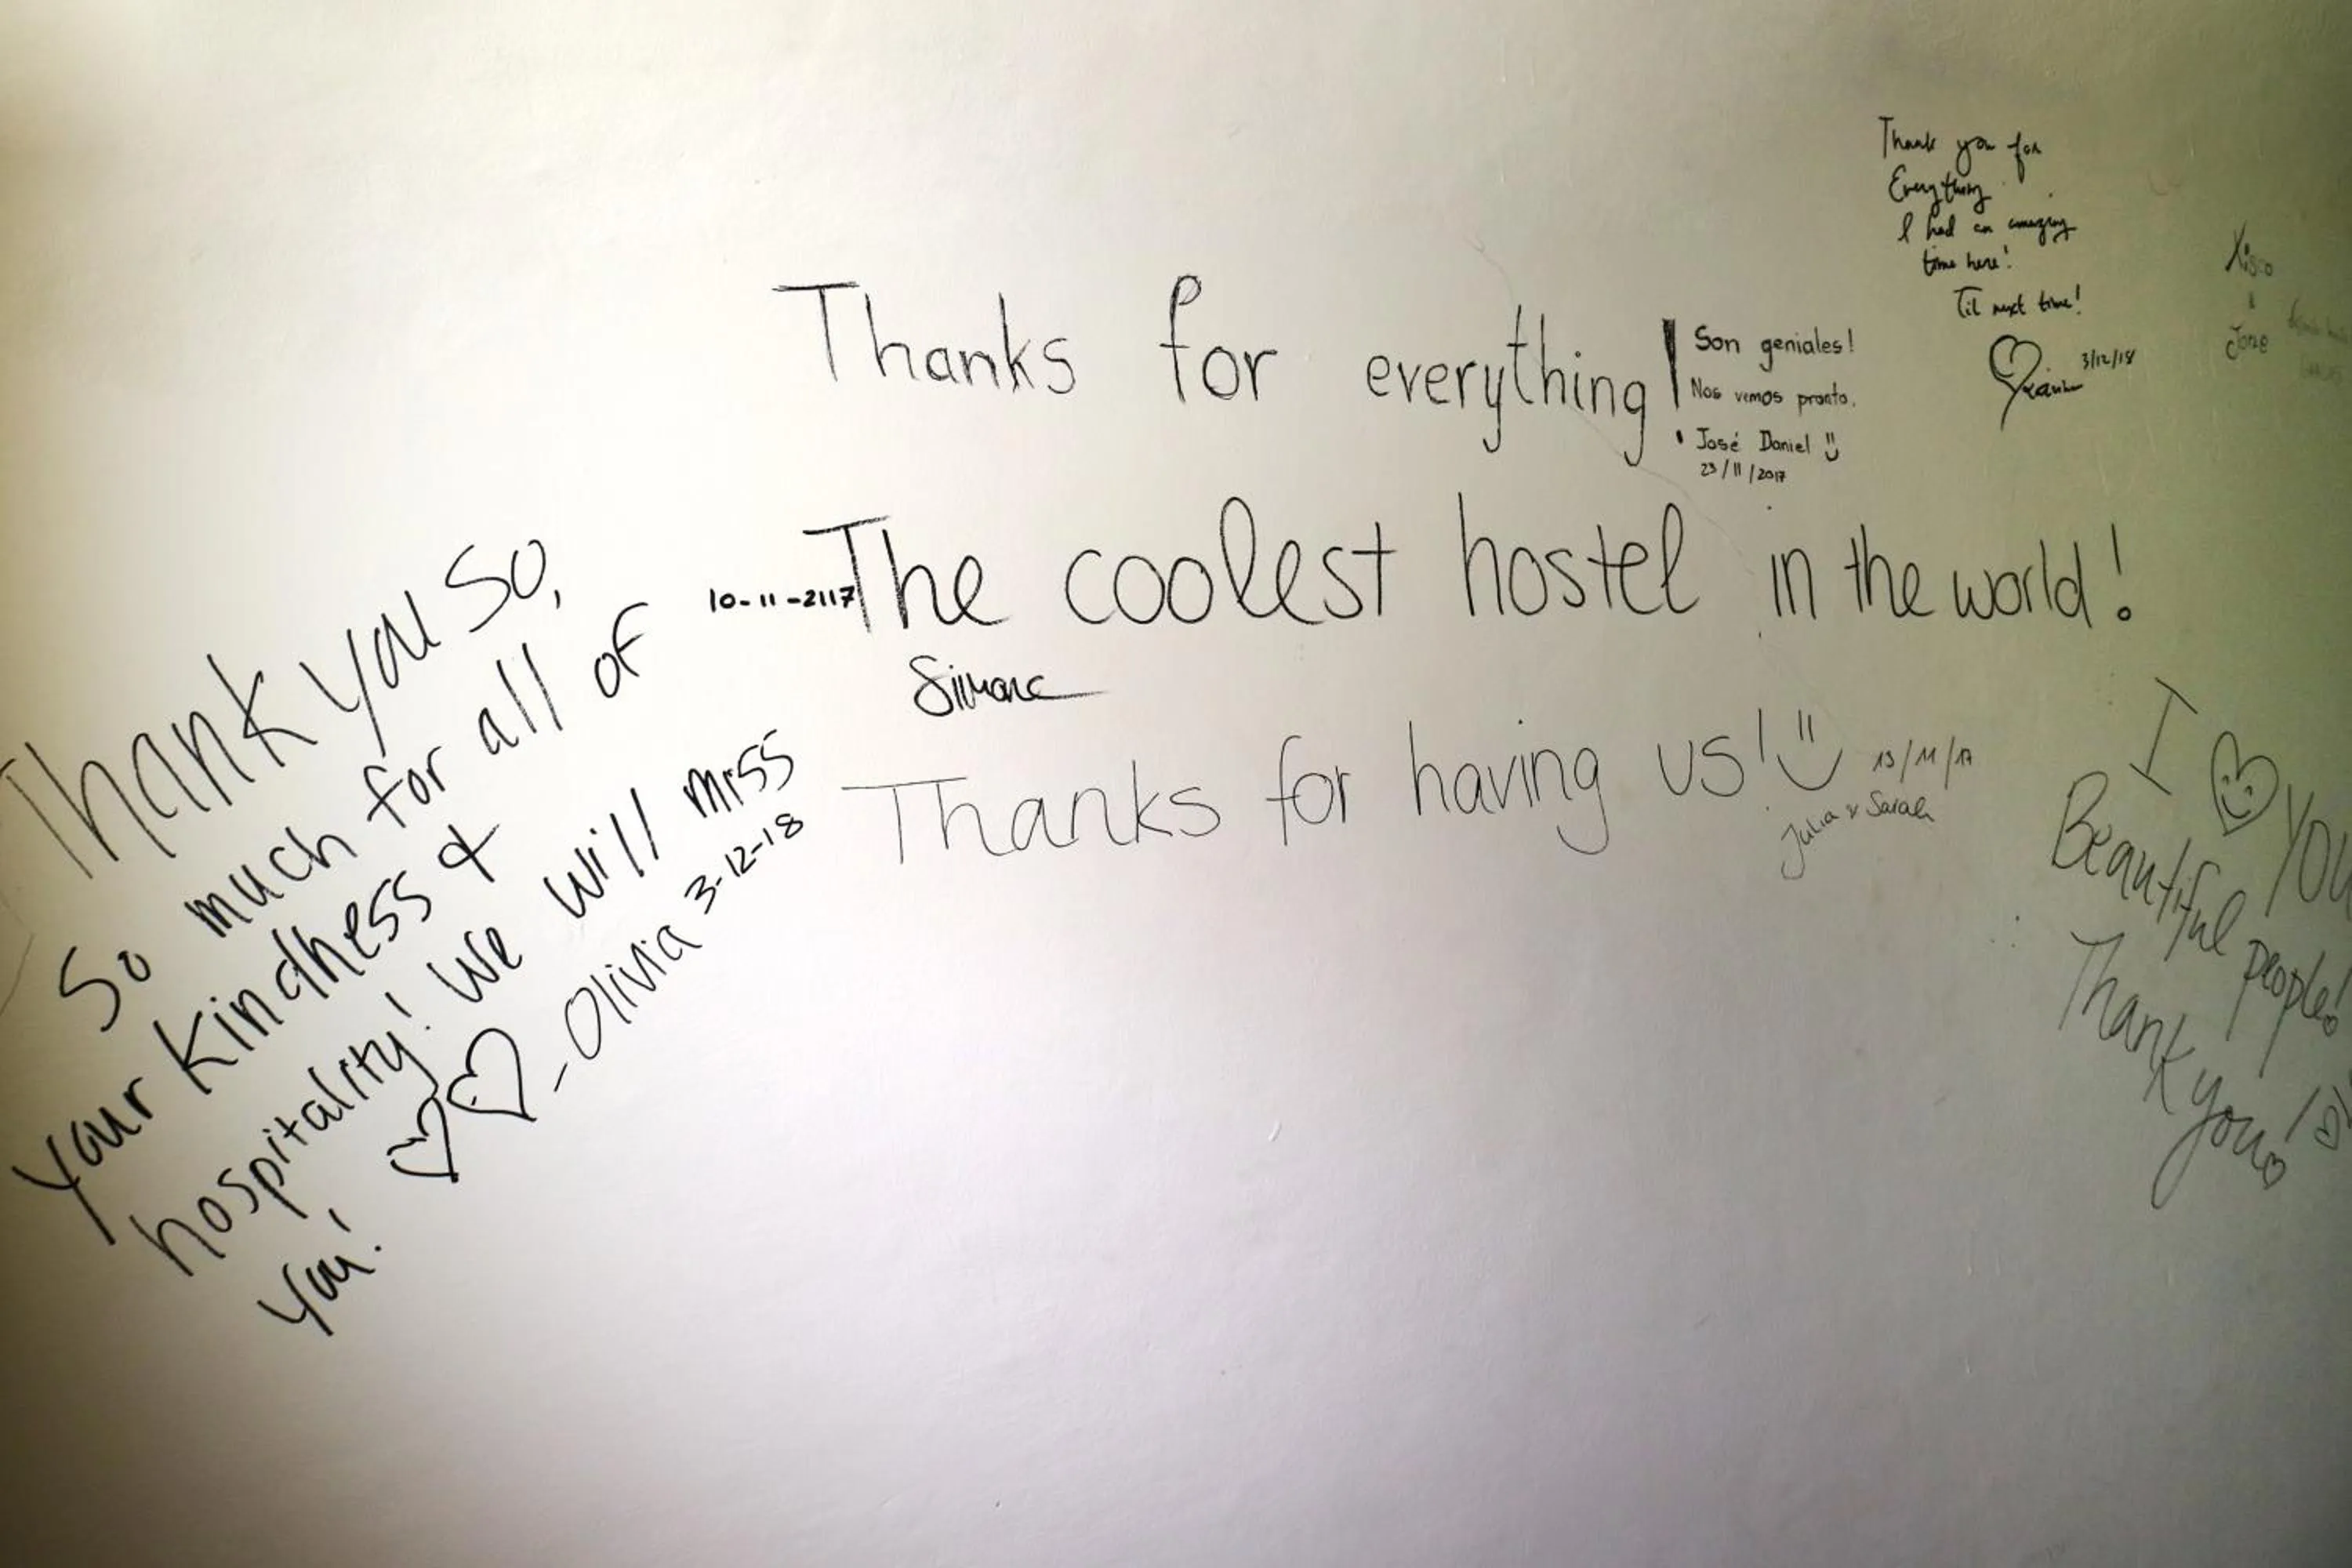 Thank you so,
so much for all of
your kindness &
hospitality! We will miss
you!
-Olivia 3-12-18
Thanks for everything!
10-11-2117
The coolest hostel in the world!
Simone
Thanks for having us!
13/11/17
Julia & Sarah
Son geniales!
Nos vemos pronto.
José Daniel
23/11/2017
Thank you for
Everything
I had an amazing
time here!
Til next time!
3/12/18
Xisco
Jone
I YOU
Beautiful people!
Thank you